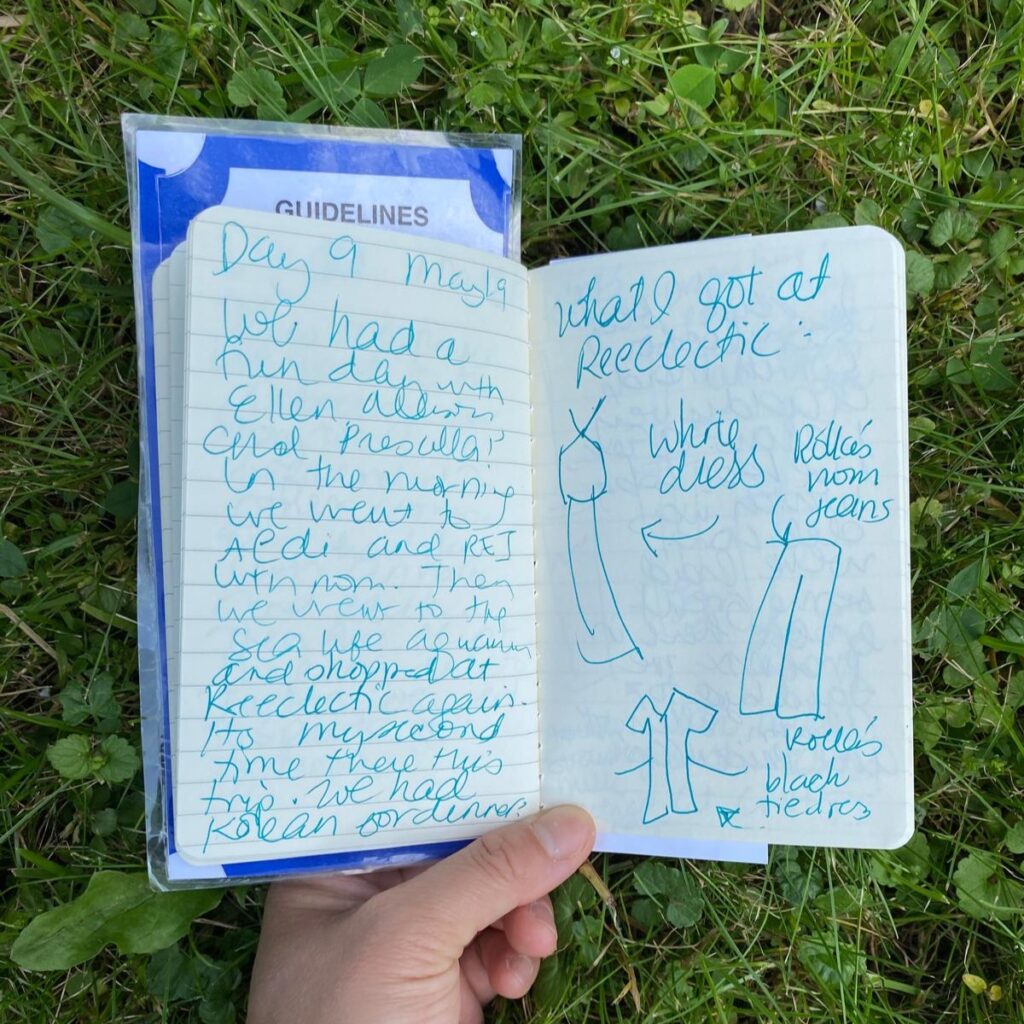 GUIDELINES
Day 9 May 19
We had a
fun day with
Ellen Allison
and Prescilla!
In the morning
we went to
Aldi and REI
with mom. Then
we went to the
sea life aquarium
and shopped at
Reeclectic again.
Its my second
time there this
trip. We had
Korean for dinner.
What I got at
Reeclectic :
White
dress
mom
jeans
black
tie dress